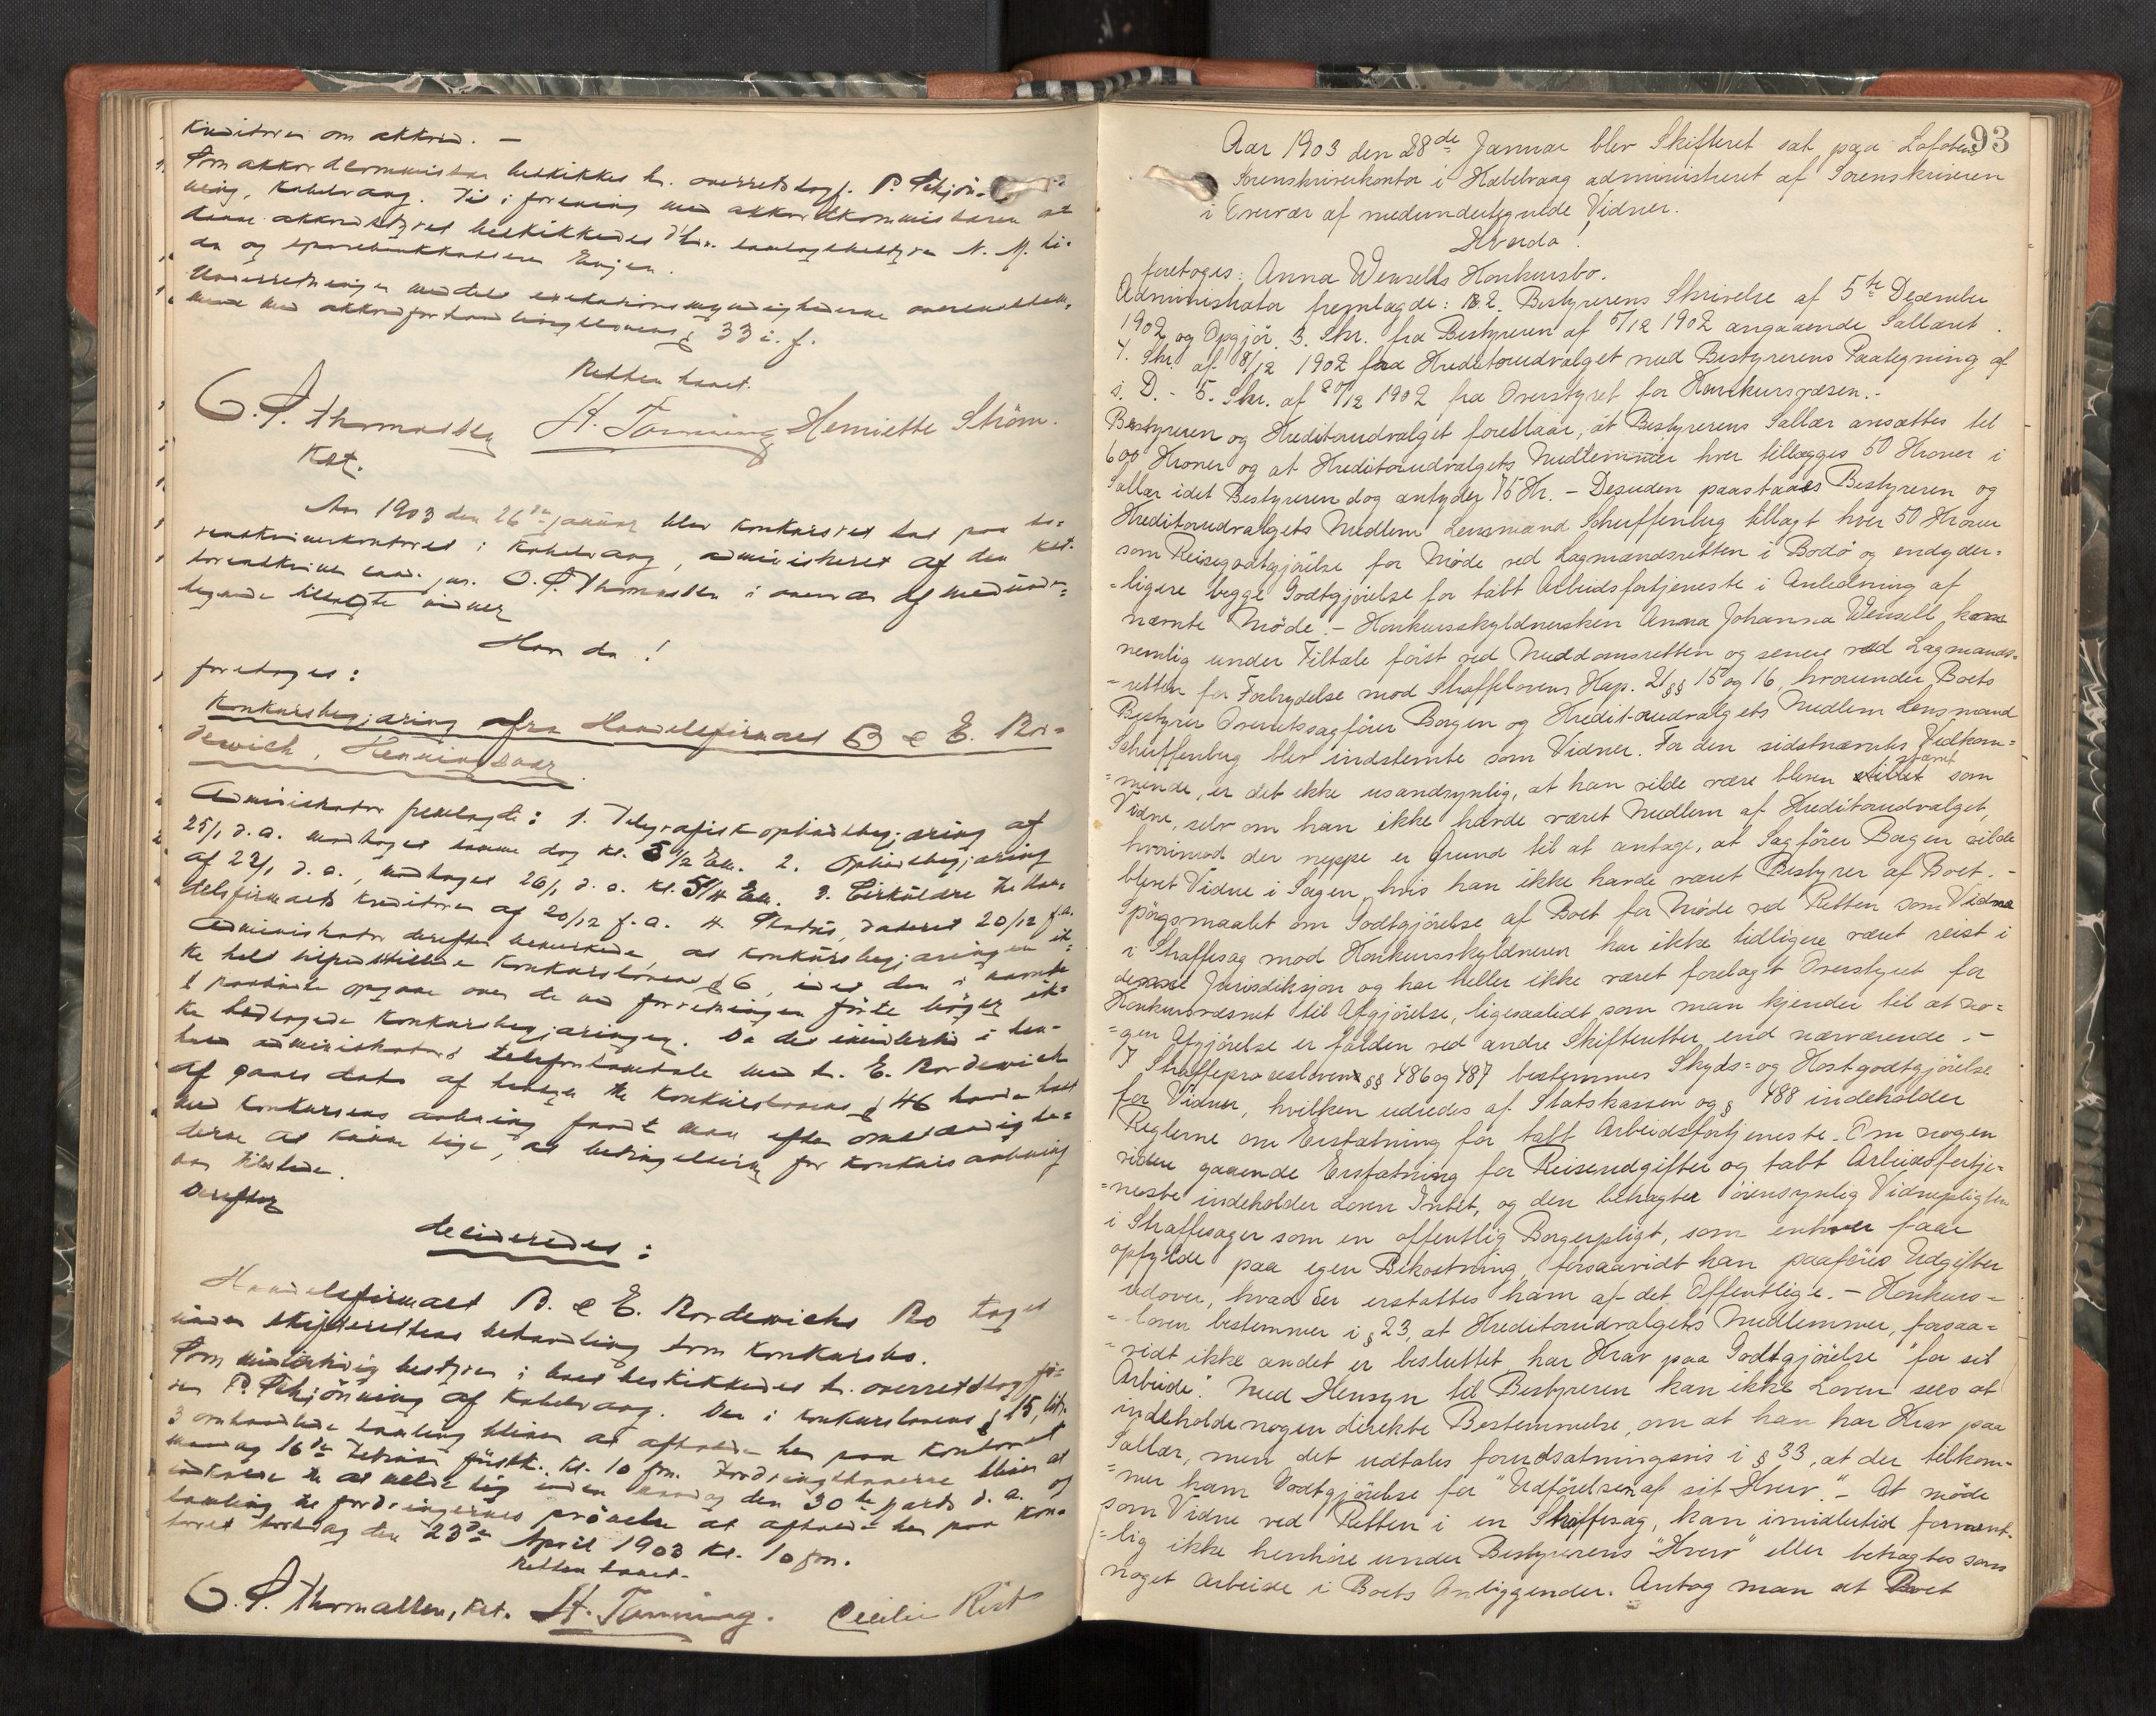 Kreditorer om akkord. —
Som akkordkommissær beskikkes hr. overretssagf. P. Schjön-
ning, Kabelvaag. Til i forening med akkordkommissæren at
danne akkordstyret beskikkedes d'hr. samlagsbestyrer N. M. Li-
da og sparebankkasserer Engen.
Underretninger meddeles exekutionsmyndighederne overensstem-
mende med akkordforhandlingslovens § 33 i. f.
Retten hævet.
O. S. Thomassen H. Tönning Henriette Ström.
Kst.
Aar 1903 den 26de januar blev konkursret sat paa so-
renskriverkontoret i Kabelvaag, administreret af den kst.
sorenskriver cand. jur. O. S. Thomassen i overvær af medund-
tegnede tilkaldte vidner
Hvor da!
foretoges:
Konkursbegjæring fra Handelsfirmaet B & E. Ror-
dewich, Henningsvær.
Administrator fremlagde: 1. Telegrafisk opbudsbegjæring af
25/1 d. a. modtaget samme dag kl. 5 1/2 Em. 2. Opbudsbegjæring
af 22/1 d. a., modtaget 26/1 d. a. kl. 5 1/4 Em. 3. Cirkulære til Han-
delsfirmaets kreditorer af 20/12 f. a. 4. Status, dateret 20/12 f. a.
Administrator derefter bemærkede, at konkursbegjæringen ik-
ke helt tilfredsstillede konkurslovens § 6, idet den i nævnte
§ paabudne opgave over de ved forretningen förte böger ik-
ke ledsagede konkursbegjæringen. Da der imidlertid i hen-
hold administrators telefonsamtale med hr. E. Rordewich
af gaars dato af hensyn til konkurslovens § 46 havde hast
med konkursens aabning fandt man efter omstændighe-
derne at kunne sige, at betingelserne for konkursaabning
var tilstede.
Derefter
decideredes:
Handelsfirmaet B. & E. Rordewichs Bo tages
under skifterettens behandling som konkursbo.
Som midlertidig bestyrer i boet beskikkedes hr. overretssagfö-
rer P. Schjönning af Kabelvaag. Den i konkurslovens § 15, litr.
3 omhandlede samling bliver at afholde her paa kontoret
mandag 16de februar förstk. kl. 10 fm. Fordringshaverne bliver at
indkalde til at melde sig inden mandag den 30te marts d. a. og
samling til fordringernes prövelse at afholde her paa kon-
toret torsdag den 23de April 1903 kl. 10 fm.
Retten hævet.
O. S. Thomassen, kst. H. Tönning. Cecilie Rist
93
Aar 1903 den 28de Januar blev Skifteret sat paa Lofotens
Sorenskriverkontor i Kabelvaag administreret af Sorenskriveren
i Overvær af medundertegnede Vidner.
Hvorda!
foretoges: Anna Wensells Konkursbo.
Administrator fremlagde: 2. Bestyrerens Skrivelse af 5te December
1902 og Opgjör. 3. Skr. fra Bestyreren af 5/12 1902 angaaende Sallæret.
4. Skr. af 8/12 1902 fra Kreditorudvalget med Bestyrerens Paategning af
s. D. - 5. Skr. af 20/12 1902 fra Overstyret for Konkursvæsen. -
Bestyreren og Kreditorudvalget foreslaar, at Bestyrerens Sallær ansættes til
600 Kroner og at Kreditorudvalgets Medlemmer hver tillægges 50 Kroner i
Sallær idet Bestyreren dog antyder 75 Kr. - Desuden paastaaes Bestyreren og
Kreditorudvalgets Medlem Lensmand Scheffenberg tillagt hver 50 Kroner
som Reisegodtgjörelse for Möde ved Lagmandsretten i Bodö og endyder-
-ligere begge Godtgjörelse for tabt Arbeidsfortjeneste i Anledning af
nævnte Möde. - Konkursskyldnersken Anna Johanna Wensell kom
nemlig under Tiltale först ved Meddomsretten og senere ved Lagmands-
-retten for Forbrydelse mod Straffelovens Kap. 21 §§ 15 og 16, hvorunder Boets
Bestyrer Overretssagförer Borgen og Kreditorudvalgets Medlem Lensmand
Scheffenberg blev indstemte som Vidner. For den sidstnævntes Vedkom-
-mende, er det ikke usandsynlig, at han vilde være bleven stævnet som
Vidne, selv om han ikke havde været Medlem af Kreditorudvalget,
hvorimod der neppe er Grund til at antage, at Sagförer Borgen vilde
blevet Vidne i Sagen, hvis han ikke havde været Bestyrer af Boet. -
Spörgsmaalet om Godtgjörelse af Boet for Möde ved Retten som Vidne
i Straffesag mod Konkursskyldneren har ikke tidligere været reist i
denne Jurisdiksjon og har heller ikke været forelagt Overstyret for
Konkursvæsnet til Afgjörelse, ligesaalidt som man kjender til at no-
-gen Afgjörelse er falden ved andre Skifteretter end nærværende. -
I Straffeproceslovens §§ 486 og 487 bestemmes Skyds- og Kostgodtgjörelse
for Vidner, hvilken udredes af Statskassen og § 488 indeholder
Reglerne om Erstatning for tabt Arbeidsfortjeneste. Om nogen
videre gaaende Erstatning for Reiseudgifter og tabt Arbeidsfortje-
-neste indeholder Loven Intet, og den betragter öiensynlig Vidnepligten
i Straffesager som en offentlig Borgerpligt, som enhver faar
opfylde paa egen Bekostning, forsaavidt han paaföres Udgifter
udover, hvad der erstattes ham af det Offentlige. - Konkurs-
-loven bestemmer i § 23, at Kreditorudvalgets Medlemmer, forsaa-
-vidt ikke andet er besluttet har Krav paa Godtgjörelse "for sit
Arbeide". Med Hensyn til Bestyreren kan ikke Loven sees at
indeholde nogen direkte Bestemmelse, om at han har Krav paa
Sallær, men det udtales forudsætningsvis i § 33, at der tilkom-
-mer ham Godtgjörelse for "Udförelsen af sit Hverv". - At möde
som Vidne ved Retten i en Straffesag, kan imidlertid forment-
-lig ikke henhöre under Bestyrerens "Hverv" eller betragtes som
noget Arbeide i Boets Anliggender. Antog man at Boet